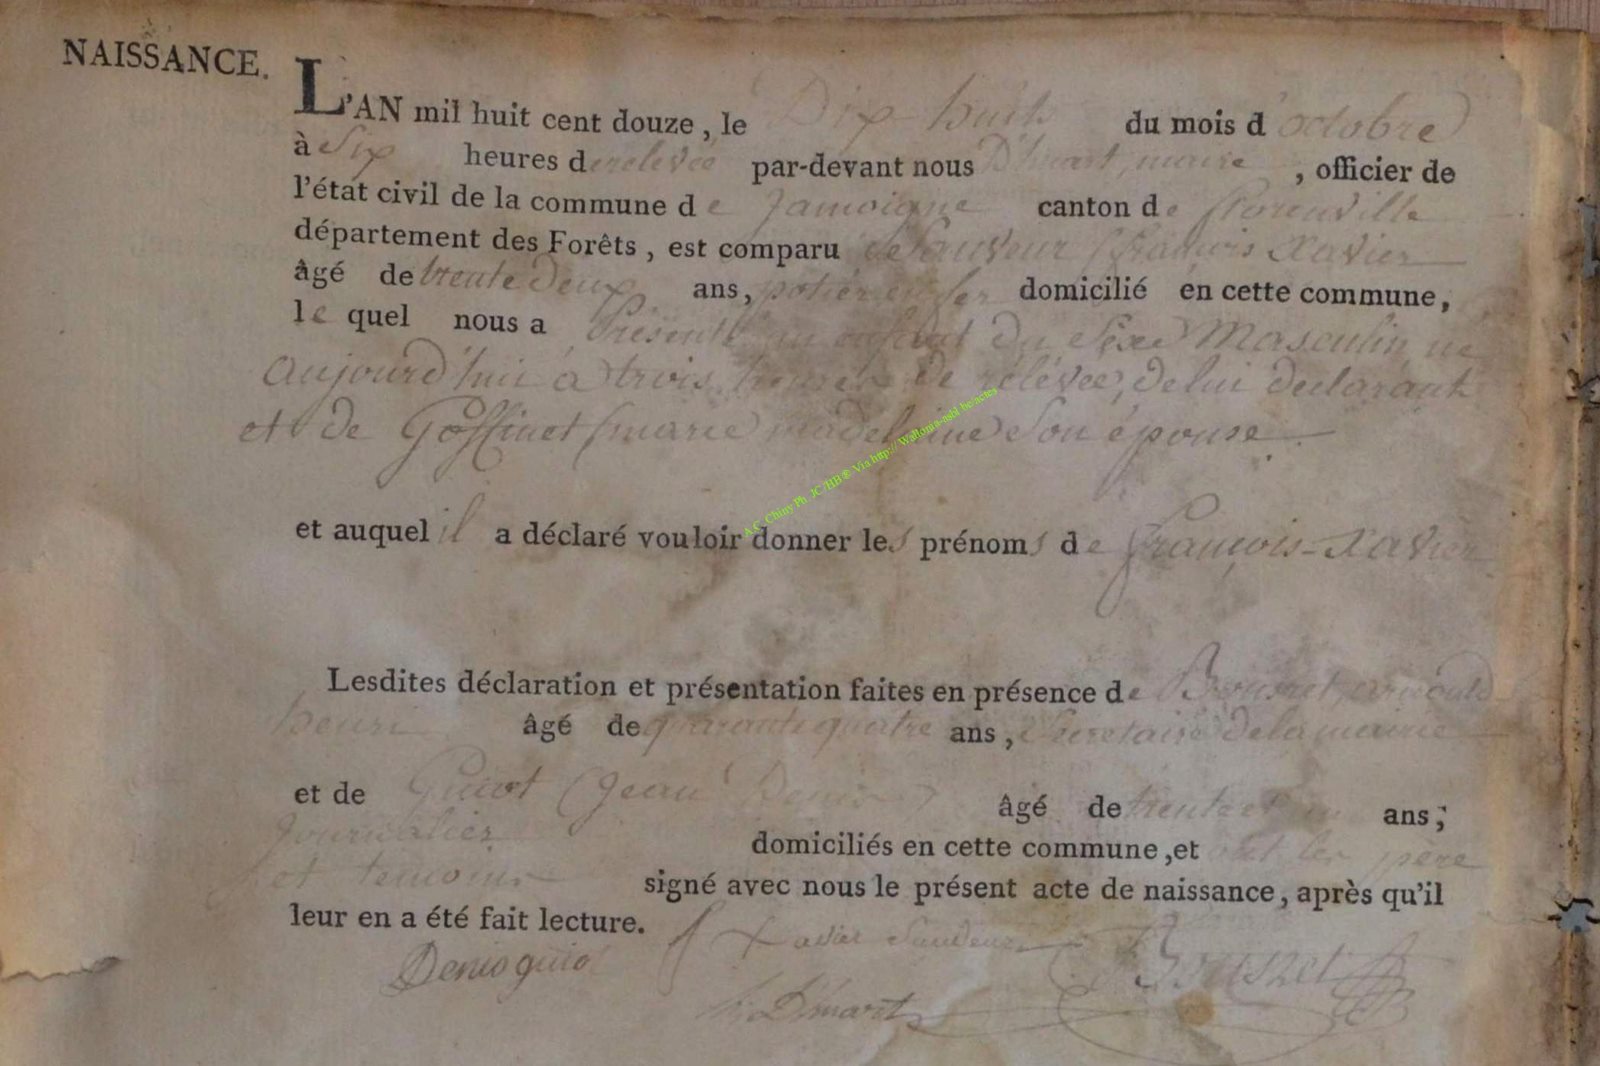 NAISSANCE.
L'AN mil huit cent douze, le Dix huit du mois d'octobre
à Six heures de relevée par-devant nous Dhuart, maire, officier de
l'état civil de la commune de Jamoigne canton de florenville
département des Forêts, est comparu (françois Xavier
âgé de trente Deux ans, potier en fer domicilié en cette commune,
lequel nous a Présenté un enfant du Sexe Masculin, né
aujourd'hui a trois heures de relévée, de lui declarant
et de Goffinet (marie madelaine) Son épouse
et auquel il a déclaré vouloir donner les prénoms de françois-Xavier
Lesdites déclaration et présentation faites en présence de
henri âgé de quarante quatre ans, Secretaire de la mairie
et de Guiot (Jean Denis) âgé de trente et un ans;
Journalier domiciliés en cette commune, et ont les père
et temoins signé avec nous le présent acte de naissance, après qu'il
leur en a été fait lecture.
Denis guiot Xavier
A.C. Chiny Ph. JC/HB® Via http://Wallonia-asbl.be/actes